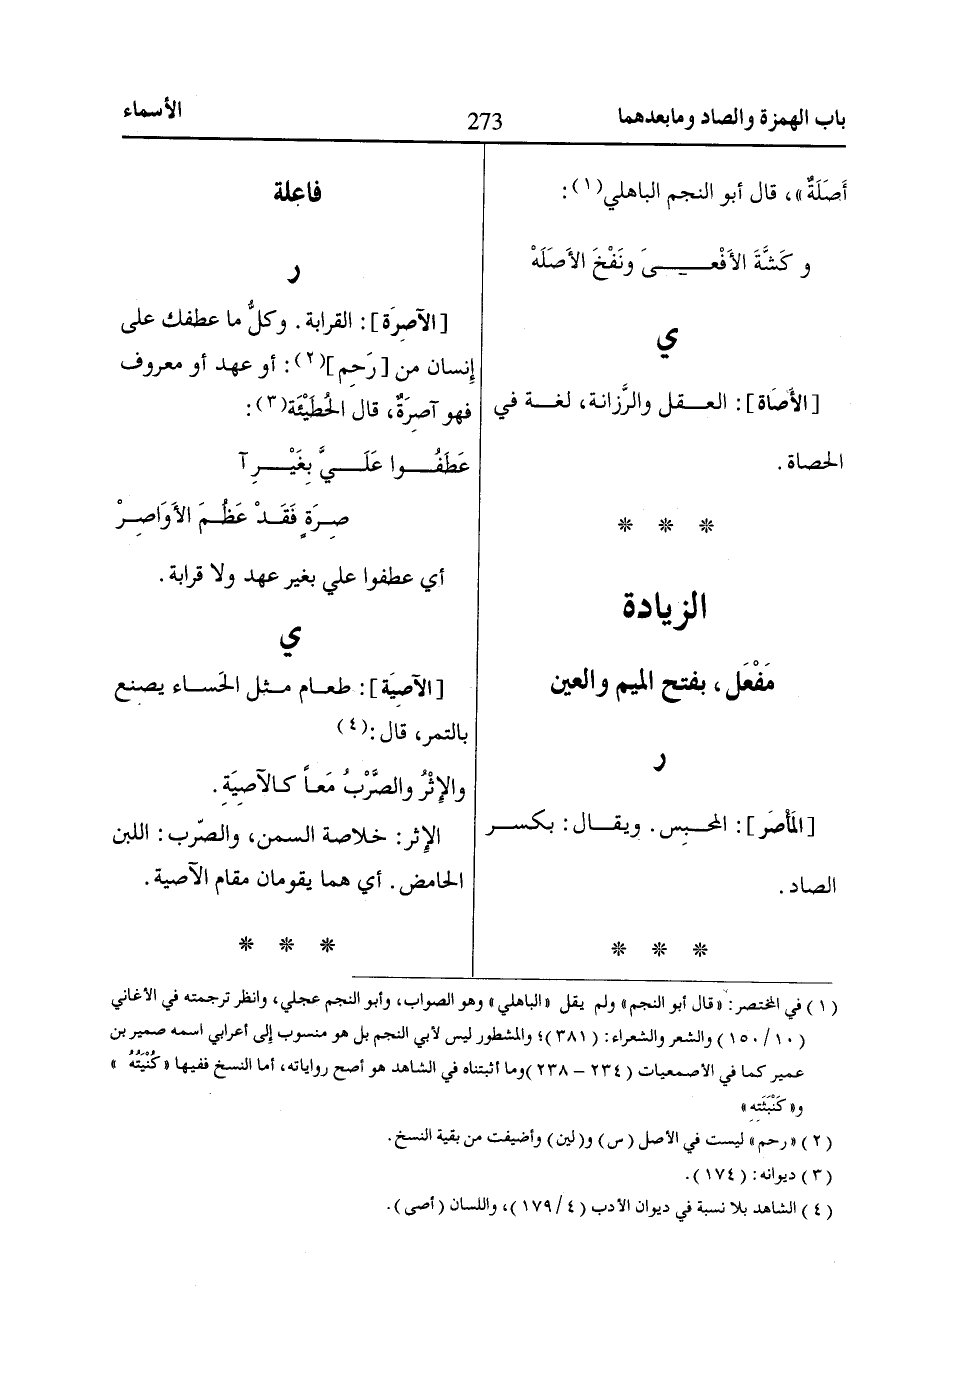 باب الهمزة والصاد ومابعدهما
273
الأسماء
أَصَلَةٌ»، قال أبو النجم الباهلي(١):
و كَشَّةَ الأَفْعـــى ونَفْخَ الأَصَلَهْ
ي
[الأَصَاة]: العـقل والرَّزانة، لغـة في
الحصاة.
* * *
الزيادة
مَفْعَل، بفتح الميم والعين
ر
[المَأْصَر]: المحـبِس. ويقـال: بكـسر
الصاد.
* * *
فاعِلة
ر
[الآصِرَة]: القرابة. وكلُّ ما عطفك على
إنسان من [رَحِم](٢): أو عهد أو معروف
فهو آصرَةٌ، قال الحُطَيْئَة(٣):
عَطَفُــوا عَلَــيَّ بِغَيْــرِ آ
صِـرَةٍ فَقَـدْ عَظُمَ الأَوَاصِـرْ
أي عطفوا علي بغير عهد ولا قرابة.
ي
[الآصِيَة]: طعـام مـثل الحَساء يصنع
بالتمر، قال:(٤)
والإِثْرُ والصَّرْبُ مَعاً كـالآصِيَةِ.
الإثر: خلاصة السمن، والصّرب: اللبن
الحامض. أي هما يقومان مقام الآصية.
* * *
(١) في المختصر: «قال أبو النجم» ولم يقل «الباهلي» وهو الصواب، وأبو النجم عجلي، وانظر ترجمته في الأغاني
(١٥٠/١٠) والشعر والشعراء: (٣٨١)؛ والمشطور ليس لأبي النجم بل هو منسوب إلى أعرابي اسمه صمير بن
عمير كما في الأصمعيات (٢٣٤ – ٢٣٨)وما أثبتناه في الشاهد هو أصح رواياته، أما النسخ ففيها «كُنْيَتُهُ »
و«كَنْبَثَتِهِ»
(٢) «رحم» ليست في الأصل (س) و(لين) وأضيفت من بقية النسخ.
(٣) ديوانه: (١٧٤).
(٤) الشاهد بلا نسبة في ديوان الأدب (١٧٩/٤)، واللسان (أصى).